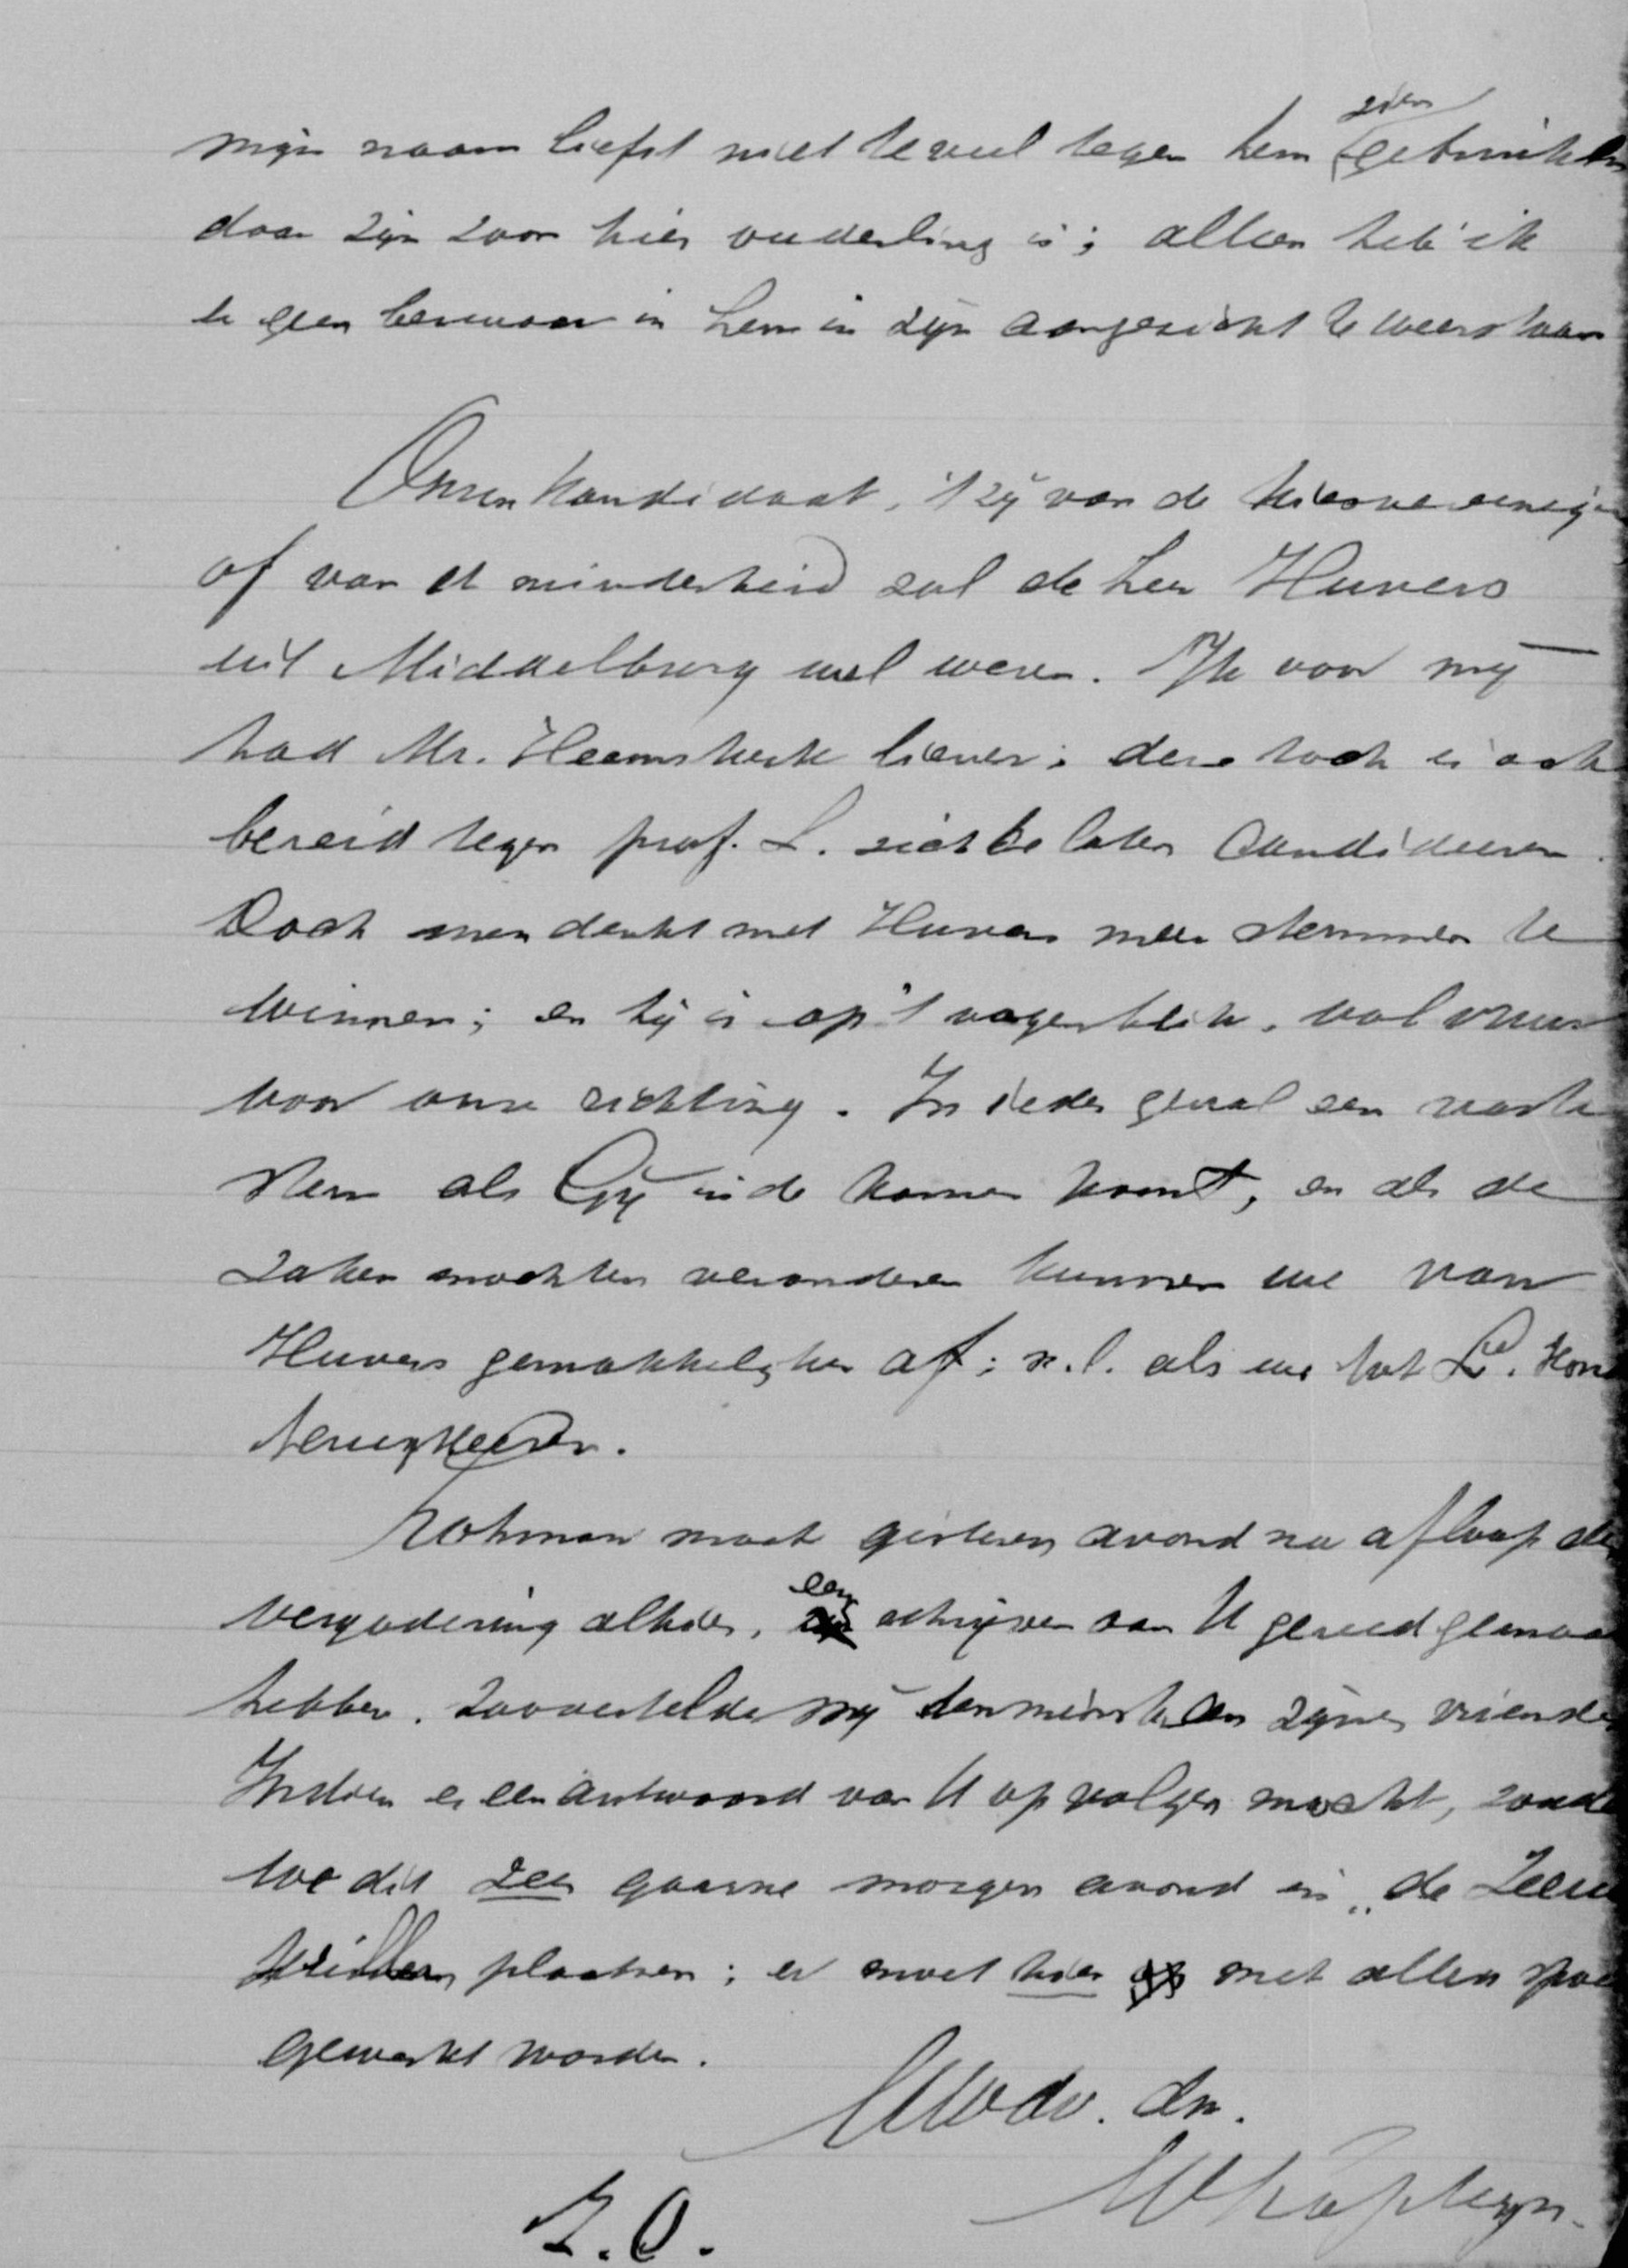 zien
mijn naam liefst niet te veel tegen hem gebruiken
daar zijn zoon hier ouderling is; alleen heb ik
er geen bezwaar in hem in zijn aangezicht te weerstaan
Onzen kandidaat, 't zij van de kiesvereenig
of van de minderheid zal de heer Huvers
uit Middelburg wel wezen. Ik voor mij
had Mr. Heemskerk liever; deze toch is ook
bereid tegen prof. L. zich te laten candideeren.
Doch men denkt met Huvers meer stemmen te
winnen; en hij is op 't oogenblik, vol vuur
voor onze richting. In ieder geval een vaste
stem als Gij in de kamer komt, en als de
zaken mochten veranderen kunnen we van
Huvers gemakkelijker af; n.l. als we tot L. Hom
terugkeeren.
Lohman moet gisteren avond na afloop der
vergadering alhier, een schrijven aan U gereed gemaa
hebben. Zoo vertelde mij tenminste een zijner vriende
Indien er een antwoord van U op volgen mocht, zoude
we dit zeer gaarne morgen avond in "de Zeeu
willen plaatsen; er moet hier met allen spoe
gewerkt worden.
UwEdw. dn.
Kapteyn.
Z.O.